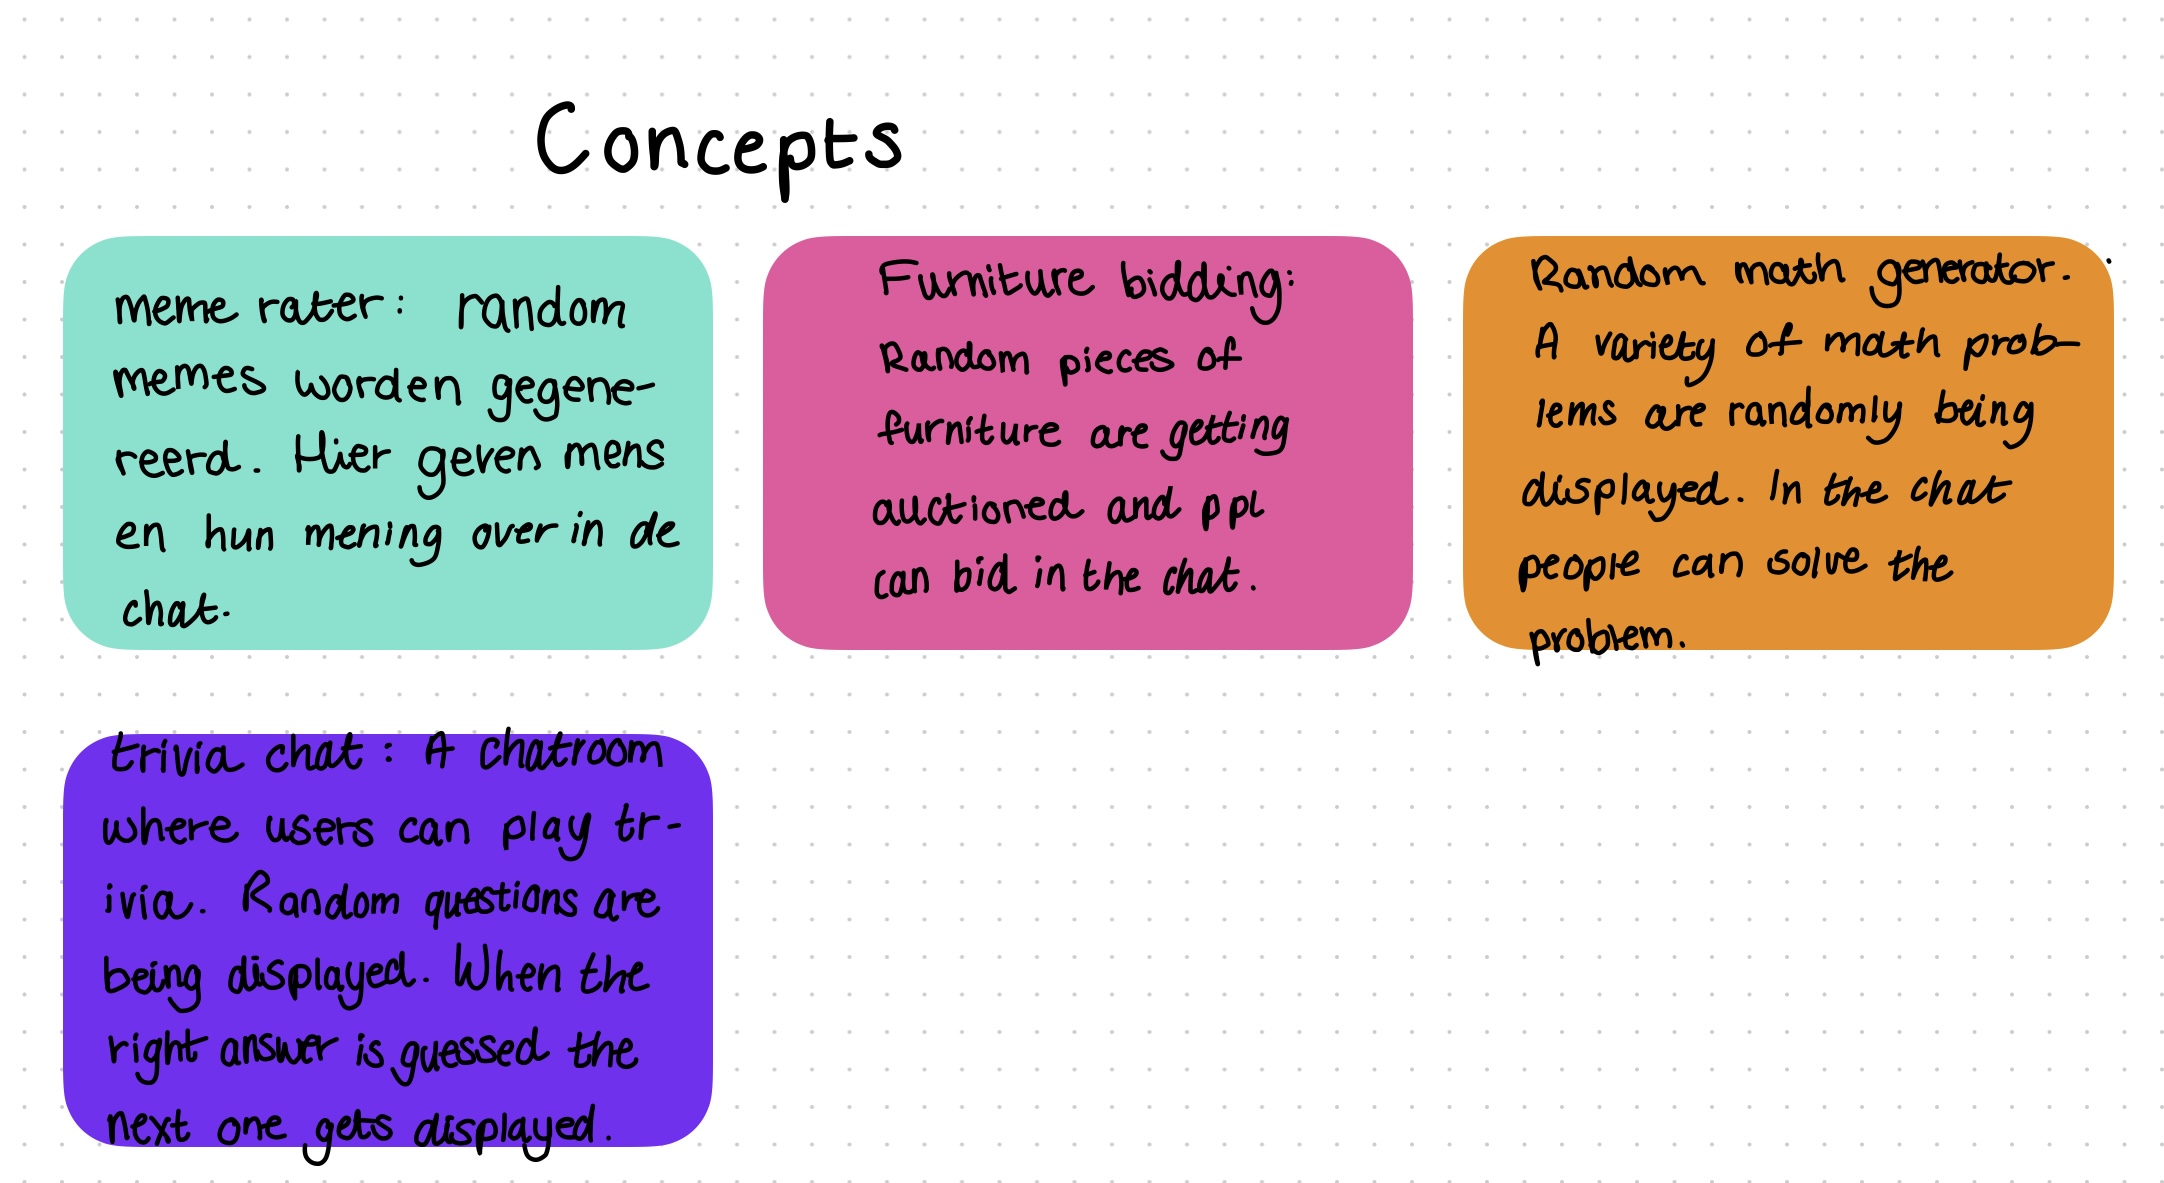 Concepts
meme rater: random
memes worden gegene-
reerd. Hier geven mens
en hun mening over in de
chat.
Furniture bidding:
Random pieces of
furniture are getting
auctioned and ppl
can bid in the chat.
Random math generator.
A variety of math prob-
lems are randomly being
displayed. In the chat
people can solve the
problem.
trivia chat: A chatroom
where users can play tr-
ivia. Random questions are
being displayed. When the
right answer is guessed the
next one gets displayed.